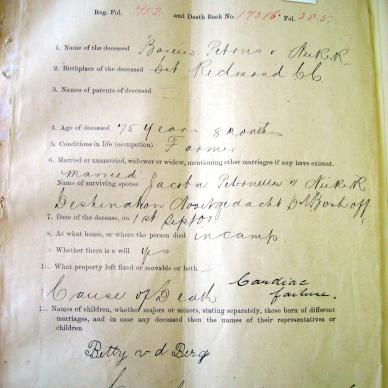 Reg. Fol. 752 and Death Book No. 17316 Fol. 385.
1. Name of the deceased Petrus v
2. Birthplace of the deceased Dst Redmond CC
3. Names of parents of deceased
4. Age of deceased 75 years 8 months
5. Conditions in life (occupation) Farmer
6. Married or unmarried, widower or widow, mentioning other marriages if any have existed.
married
Name of surviving spouse Jacoba Petronella v
Destination Nooitgedacht Boshoff
7. Date of the decease, on 1st Sept 01
8. At what house, or where the person died in camp
Whether there is a will yes
What property left fixed or movable or both
Cause of Death Cardiac
failure.
Names of children, whether majors or minors, stating separately, those born of different
marriages, and in case any deceased then the names of their representatives or
children
Betty v d Berg